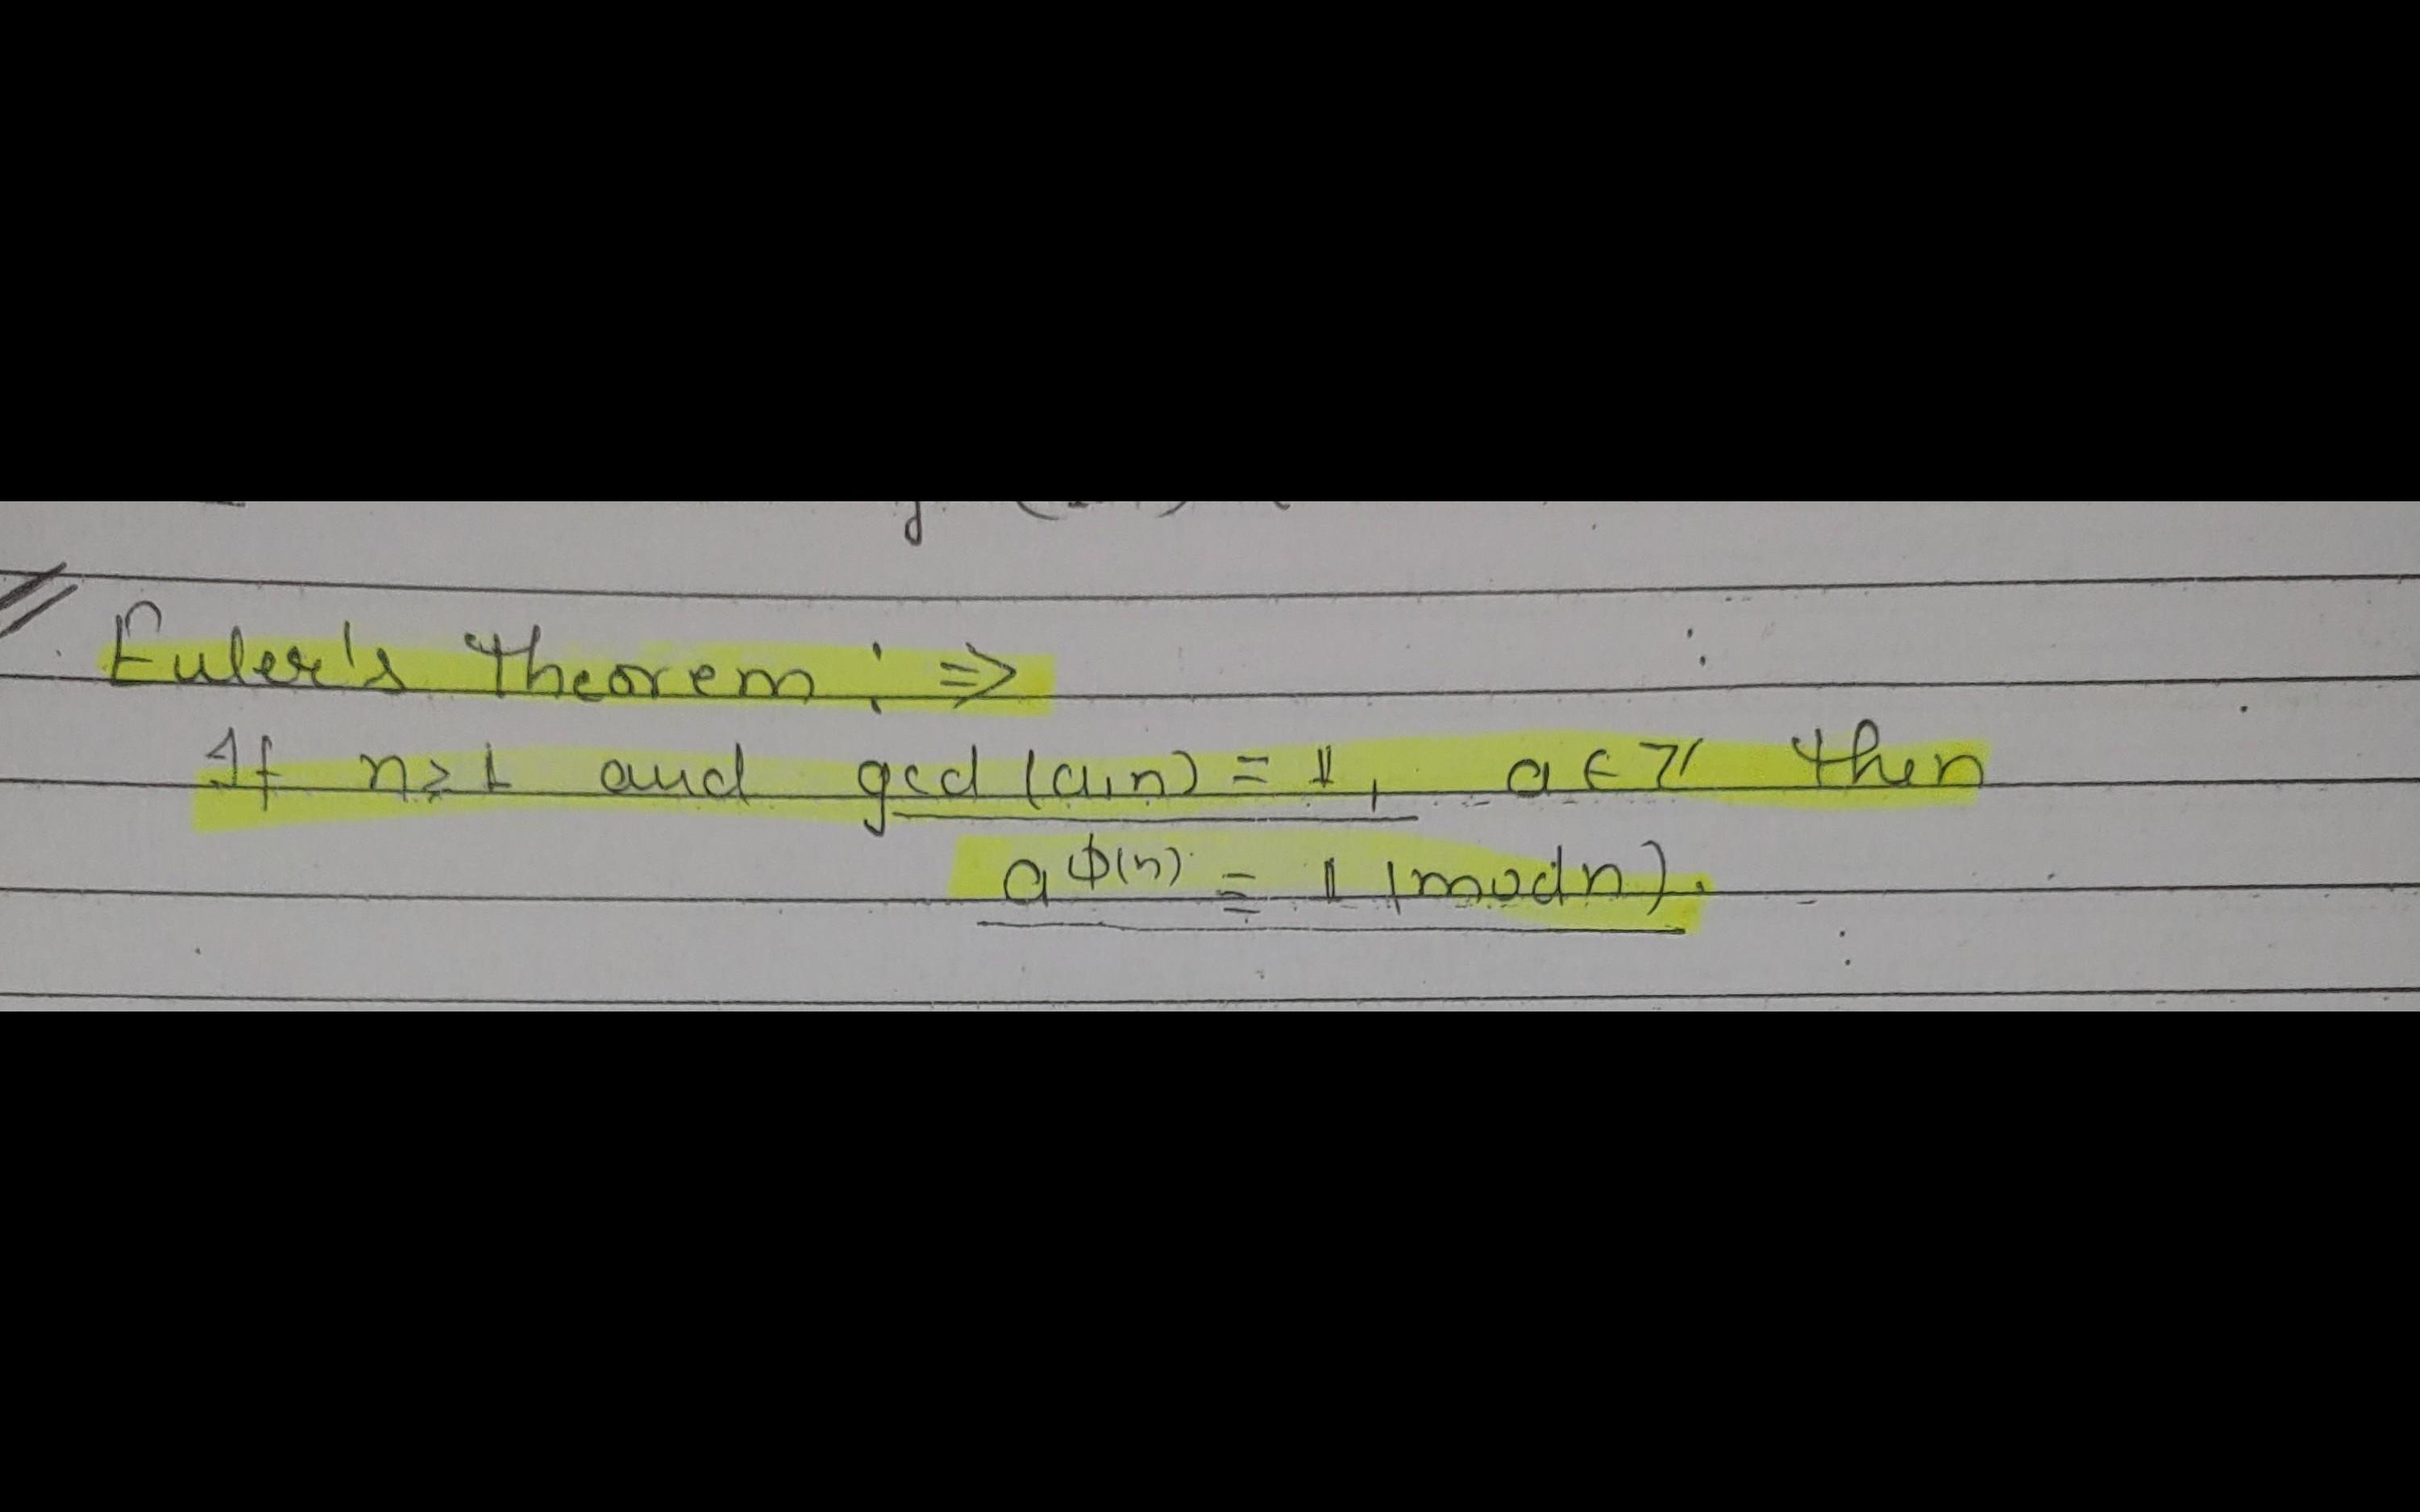 Euler's theorem :⇒
If n ≥ 1 and gcd (a,n) = 1, a ∈ ℤ then
a^ϕ(n) ≡ 1 (mod n).